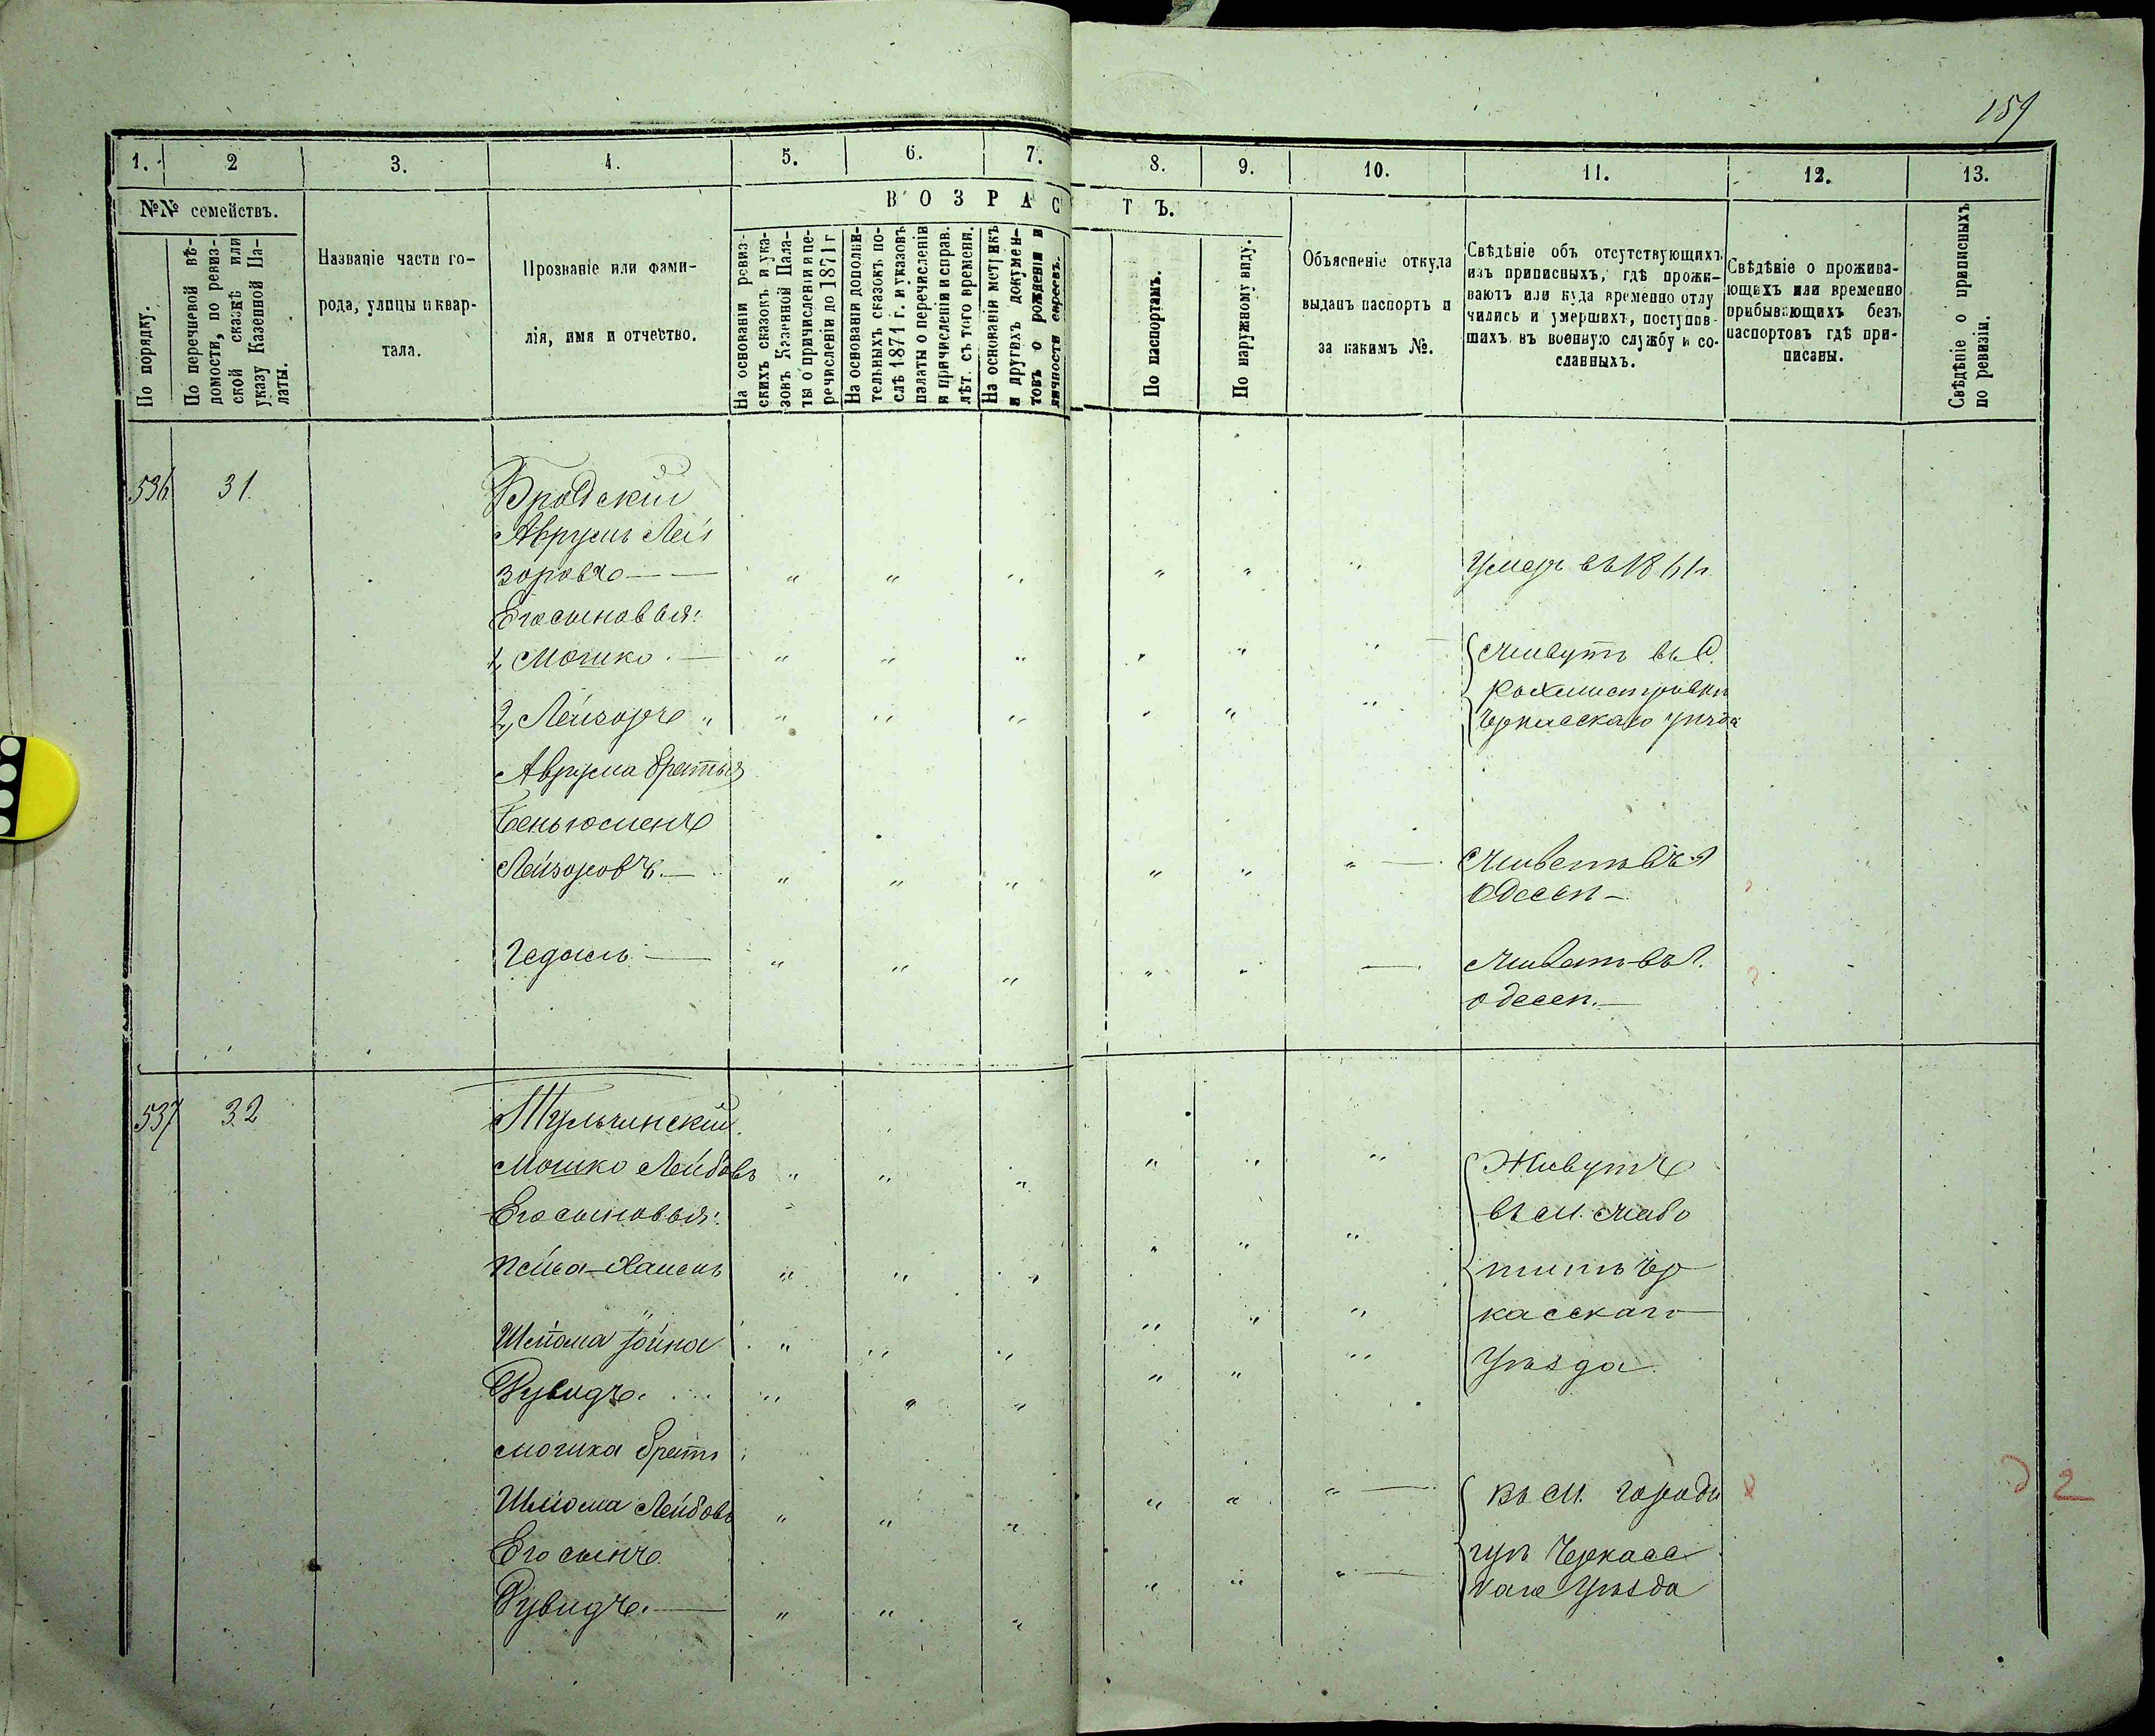 159
1. 2 3. 4. 5. 6. 7. 8. 9. 10. 11. 12. 13.
№№ семействъ.
В О З Р А С Т Ъ.
По порядку.
По перечневой вѣ-
домости, по ревиз-
ской сказкѣ или
указу Казенной Па-
латы.
Названіе части го-
рода, улицы и квар-
тала.
Прозваніе или фами-
лія, имя и отчество.
На основаніи ревиз-
скихъ сказокъ и ука-
зовъ Казенной Пала-
ты о причисленіи и пе-
речисленіи до 1871 г
На основаніи дополни-
тельныхъ сказокъ по-
слѣ 1871 г. и указовъ
палаты о перечисленіи
и причисленіи и справ.
лѣт. съ того времени.
На основаніи метрикъ
и другихъ докумен-
товъ о рожденіи и
личности евреевъ.
По паспортамъ.
По наружному виду.
Объясненіе откуда
выданъ паспортъ и
за какимъ №.
Свѣдѣніе объ отсутствующихъ
изъ приписныхъ, гдѣ прожи-
ваютъ или куда временно отлу
чились и умершихъ, поступив-
шихъ въ военную службу и со-
сланныхъ.
Свѣдѣніе о прожива-
ющихъ или временно
прибывающихъ безъ
паспортовъ гдѣ при-
писаны.
Свѣдѣніе о приписныхъ
по ревизіи.
536 31. Бродскій
Аврумъ Лей
зоровъ — " " " " " " Умеръ въ 1861 г.
Его сыновья:
1, Мошко. — " " " " " " Живутъ въ с.
Рохмистровкѣ
2, Лейзоръ " " " " " " " Черкасскаго уѣзда
Аврума братья
Беньюменъ
Лейзоровъ. — " " " " " " — Живетъ въ г.
Одессѣ —
Гедаль — " " " " " — Живетъ въ г.
Одессѣ. —
537 32 Тульчинскій
Мошко Лейбовъ " " " " " " Живутъ
Его сыновья: въ м. Жабо
Пейса-Хаимъ " " " " " " тинѣ Чер
касскаго
Шлема Іойна " " " " " " Уѣзда
Рувидъ. " " " " " "
Мошка братъ
Шлиома Лейбовъ " " " " " " — въ м. Городи
Его сынъ щѣ Черкасс
Рувидъ. — " " " " " " — каго Уѣзда
2